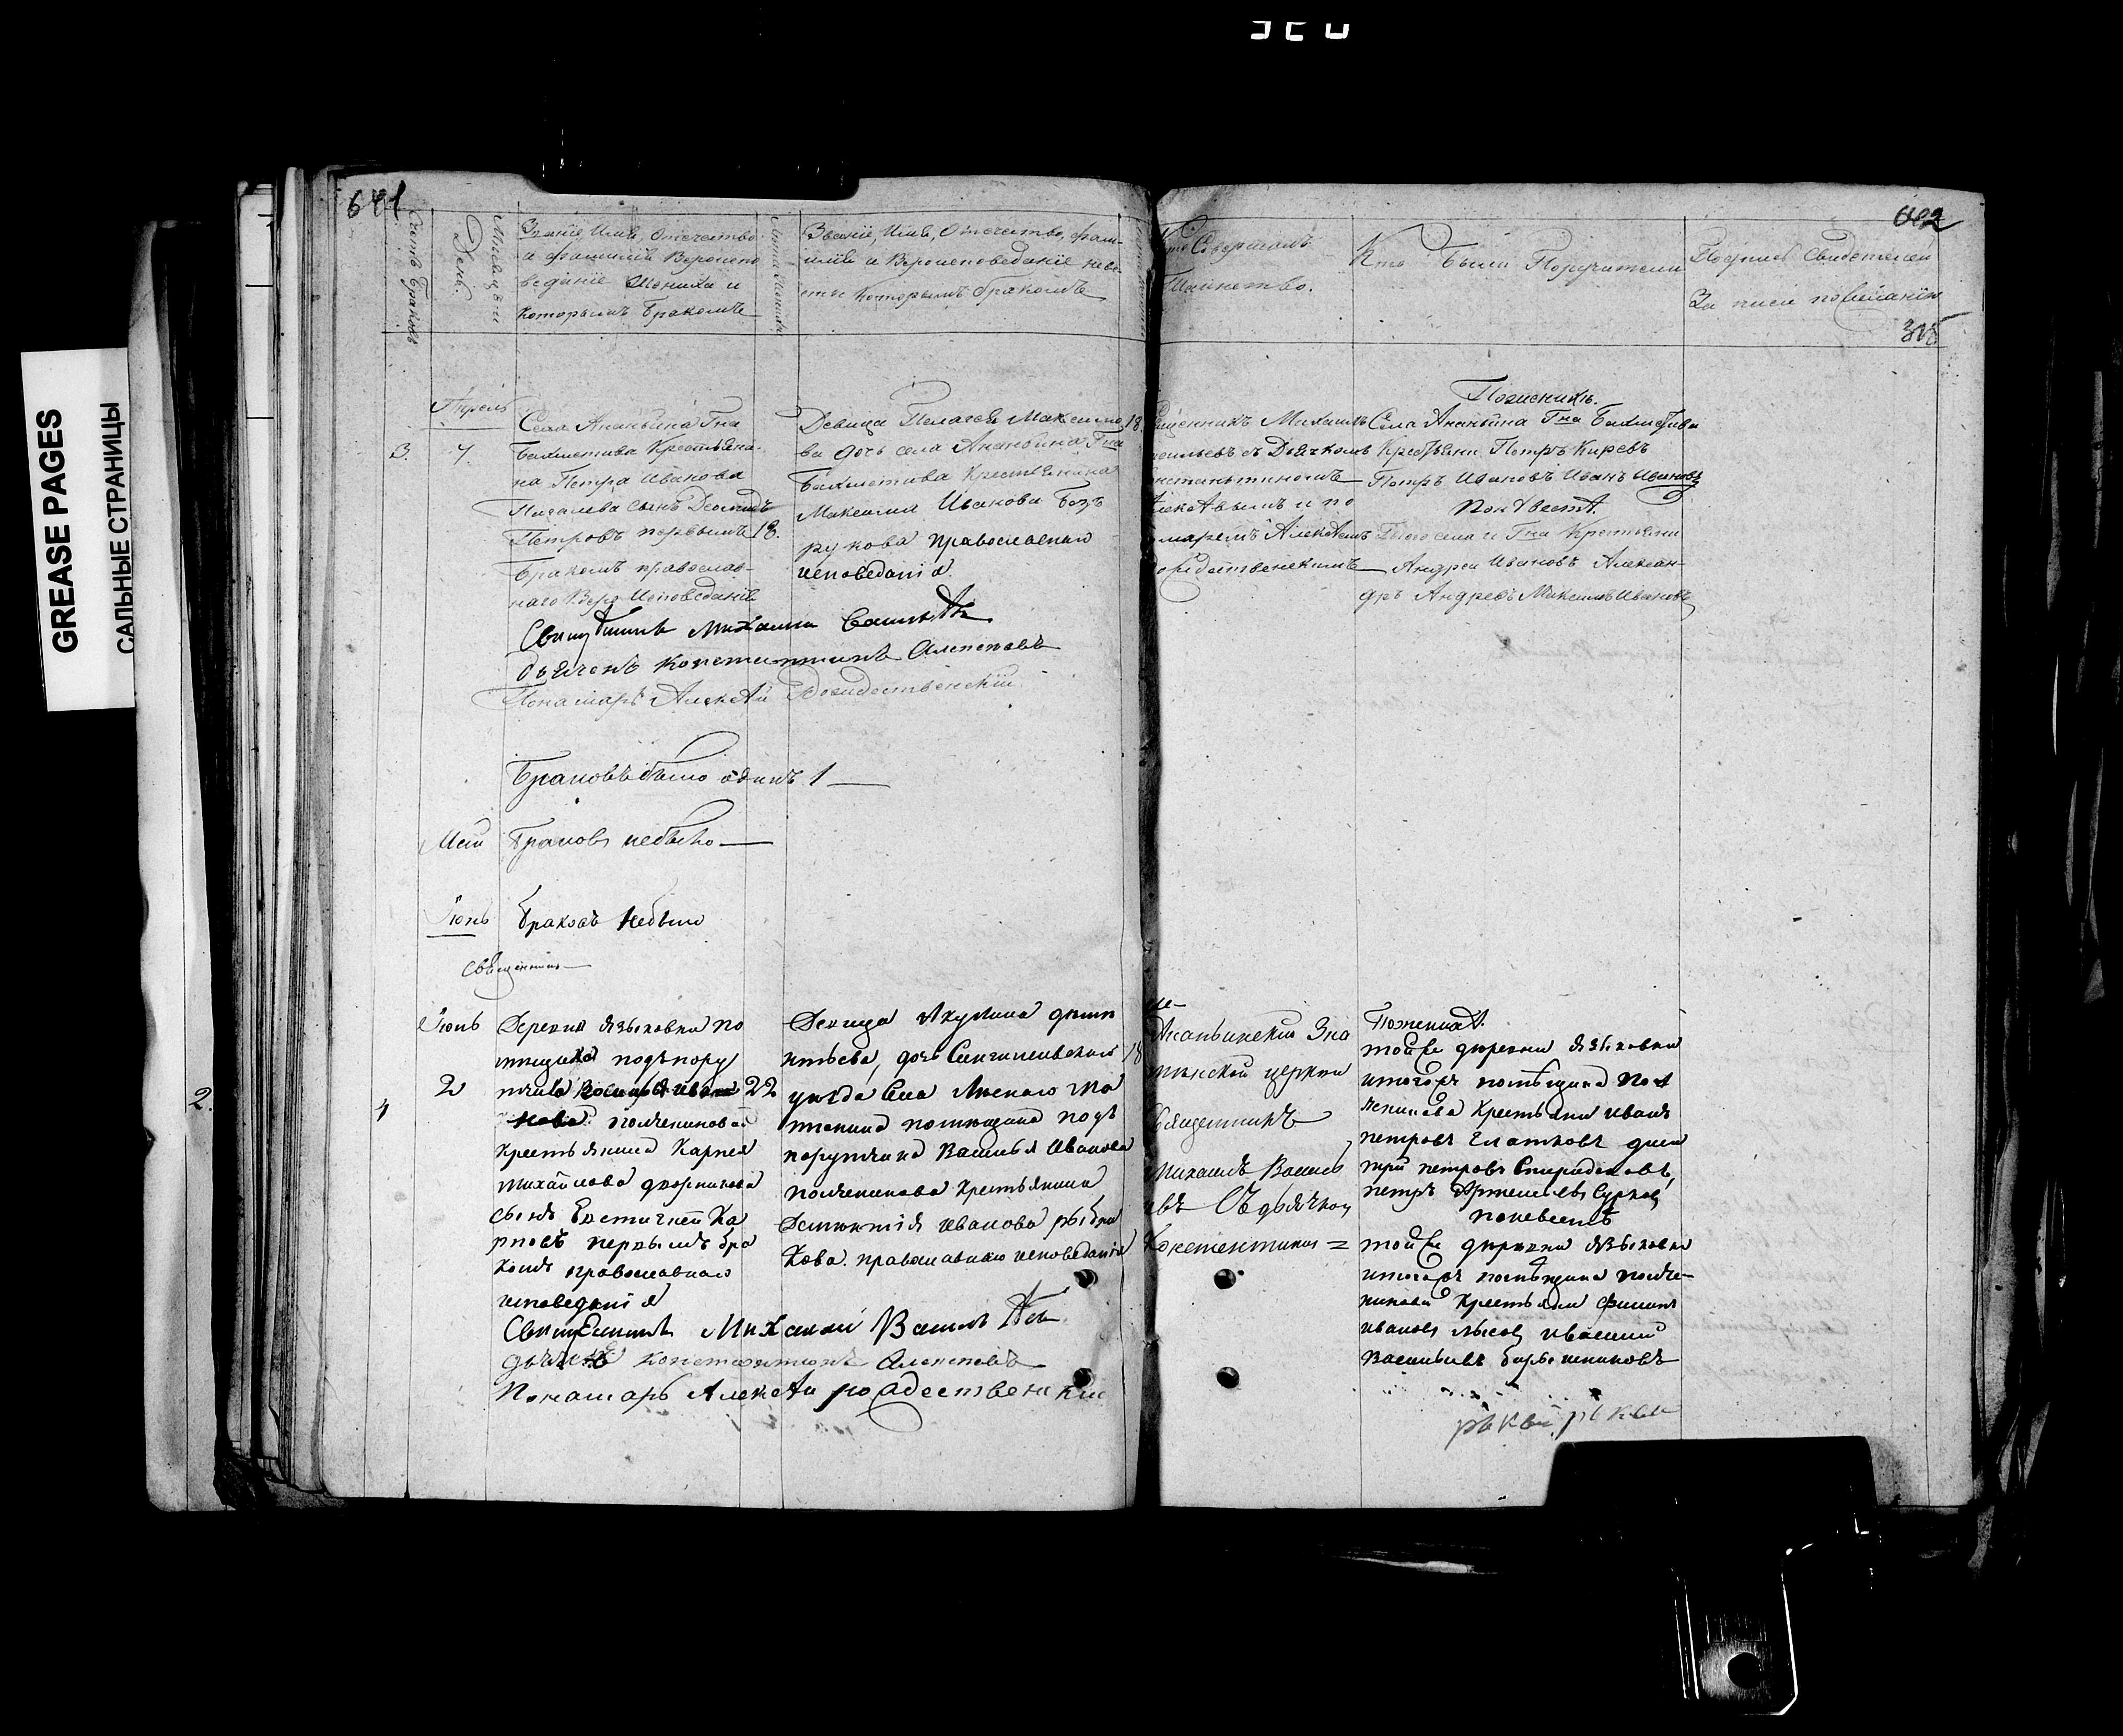 GREASE PAGES
САЛЬНЫЕ СТРАНИЦЫ
641
642
Счетъ Браковъ
Мѣсяцъ и
День.
Званіе, Имя, Отечество
и фамилія Вѣроиспо
веданіе Жениха и
которымъ Бракомъ
Лѣта Жениха
Званіе, Имя, Отечество, фам-
илія и Вѣроисповеданіе неве
сты которымъ бракомъ
Кто Совершалъ
Таинство.
Кто Были Поручители
Подпись Свидетелей
За писи по желанію
315
Апрель
3.
7.
Села Ананьина Гна
Бахметива Крестьяни-
на Петра Иванова
сынъ
Петровъ первымъ
бракомъ православ-
наго Веро Исповеданія
18.
Девица Пелагея Максимо
ва дочь села Ананьина Гна
Бахметива Крестьянина
Максима Иванова Безъ
рукова православнаго
исповеданія
18.
Священникъ Михаилъ
Васильевъ съ Дьячкомъ
Константиномъ
Алексѣвымъ и по
номаремъ Алексѣемъ
Рождественскимъ
По женихѣ.
Села Ананьина Гна Бахметива
Крестьяни Петръ Киревъ
Петръ Ивановъ Иванъ Ивановъ
По невестѣ.
Тогоже села и Гна Крестьяни
Андреи Ивановъ Алексан-
дръ Андревъ Максимъ Ивановъ
Священникъ Михаилъ Васильѣв
дьячекъ Константинъ Алексѣевъ
Понамарь Алексѣй Рождественскій
Браковъ было одинъ 1
Май
Браковъ небыло
Іюнь
браковъ небыло
Священникъ
Іюнь
2.
4
2
Деревни Языковки по
мещика подъпору
тчика Василья Ива
нова Ползениковой
крестьянина Карпея
михайлова дворникова
сынъ Евстигней Ка
рповъ первымъ бра
комъ православнаго
исповеданія
22
Девица Акулина деми
нтьева, дочь Сингилевскаго
уезда Села Ясного Та
шкина помещика подъ
порутчика Василья Иванова
ползеникова крестьянина
Дементія иванова рыбни
кова. православнаго исповеданія
18
Ананьинскій Зна
минской церкви
Священникъ
Михаилъ Василь
евъ Съ дьячком
Константиномъ =
По женихѣ.
той же деревни языковки
итогожъ помѣщика Пол
зеникова Крестьяни Иванъ
петровъ Елатковъ дми
трій петровъ Спиридоновъ,
петръ Артемьевъ Сурковъ
по невестѣ
той же деревни языковки
итогожъ помѣщика ползе-
никова Крестьяни Филипъ
Ивановъ лысовъ Ивасилій
Васильевъ барышниковъ
Священникъ Михаилъ Васильѣвъ
дьячекъ Константинъ Алексѣевъ
Понамарь Алексѣи рождественскій